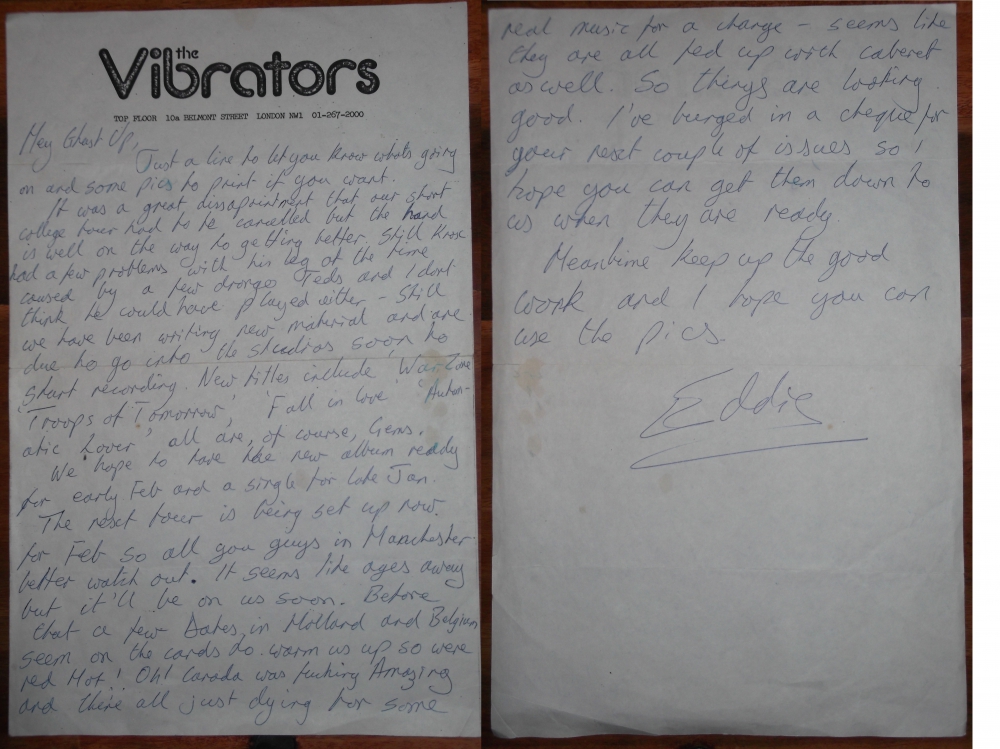 the
Vibrators
TOP FLOOR 10a BELMONT STREET LONDON NW1 01-267-2000
Hey Ghast Up,
Just a line to let you know whats going
on and some pics to print if you want.
It was a great dissapointment that our short
college tour had to be cancelled but the hand
is well on the way to getting better. Still Knox
had a few problems with his leg at the time
caused by a few drongo Teds and I dont
think he could have played either - Still
we have been writing new material and are
due to go into the studios soon to
start recording. New titles include 'War Zone'
'Troops of Tomorrow', 'Fall in love' 'Autom-
atic Lover' all are, of course, Gems.
We hope to have the new album ready
for early Feb and a single for late Jan.
The next tour is being set up now.
for Feb so all you guys in Manchester
better watch out. It seems like ages away
but it'll be on us soon. Before
that a few Dates in Holland and Belgium
seem on the cards to warm us up so were
red Hot! Oh! Canada was fucking Amazing
and there all just dying for some
real music for a change - seems like
they are all fed up with caberet
aswell. So things are looking
good. I've bunged in a cheque for
your next couple of issues so I
hope you can get them down to
us when they are ready
Meantime keep up the good
work and I hope you can
use the pics.
Eddie